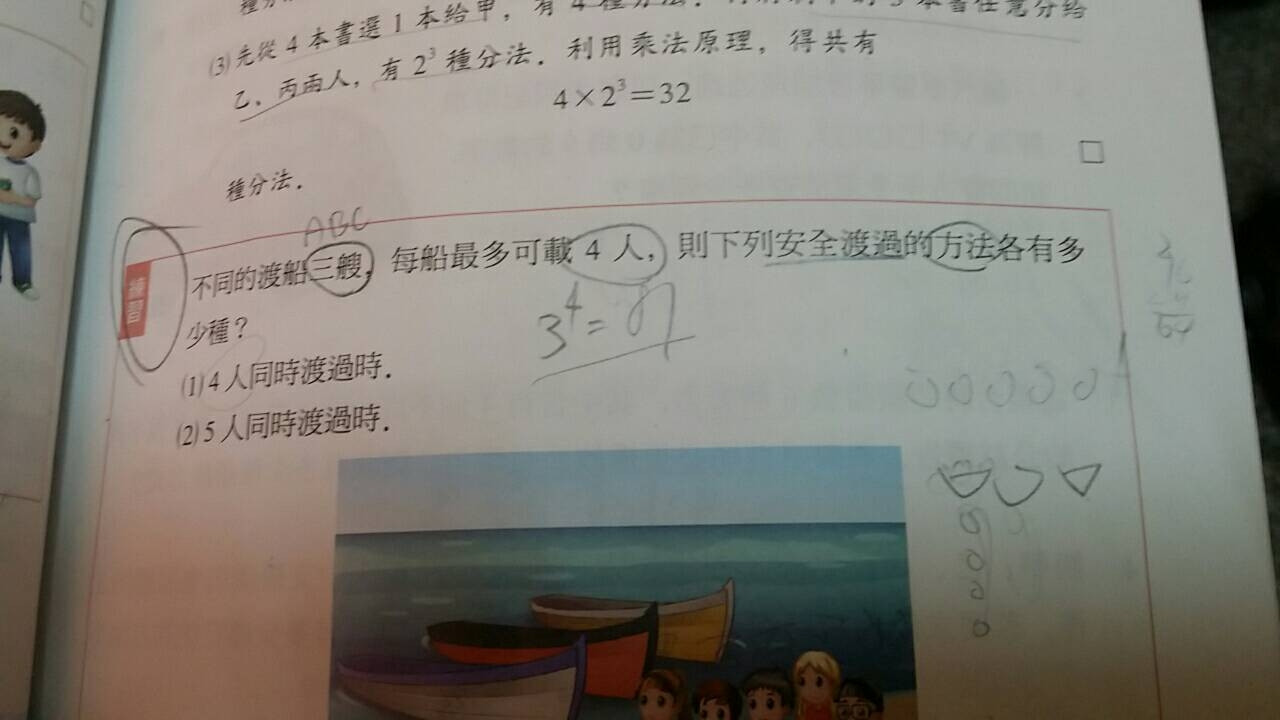 (3)先從 4 本書選 1 本給甲，有 4 種分法．
乙、丙兩人，有 2³ 種分法．利用乘法原理，得共有
4×2³＝32
種分法．
□
ABC
練習
不同的渡船三艘，每船最多可載 4 人，則下列安全渡過的方法各有多
少種？
3⁴=81
(1) 4 人同時渡過時．
(2) 5 人同時渡過時．